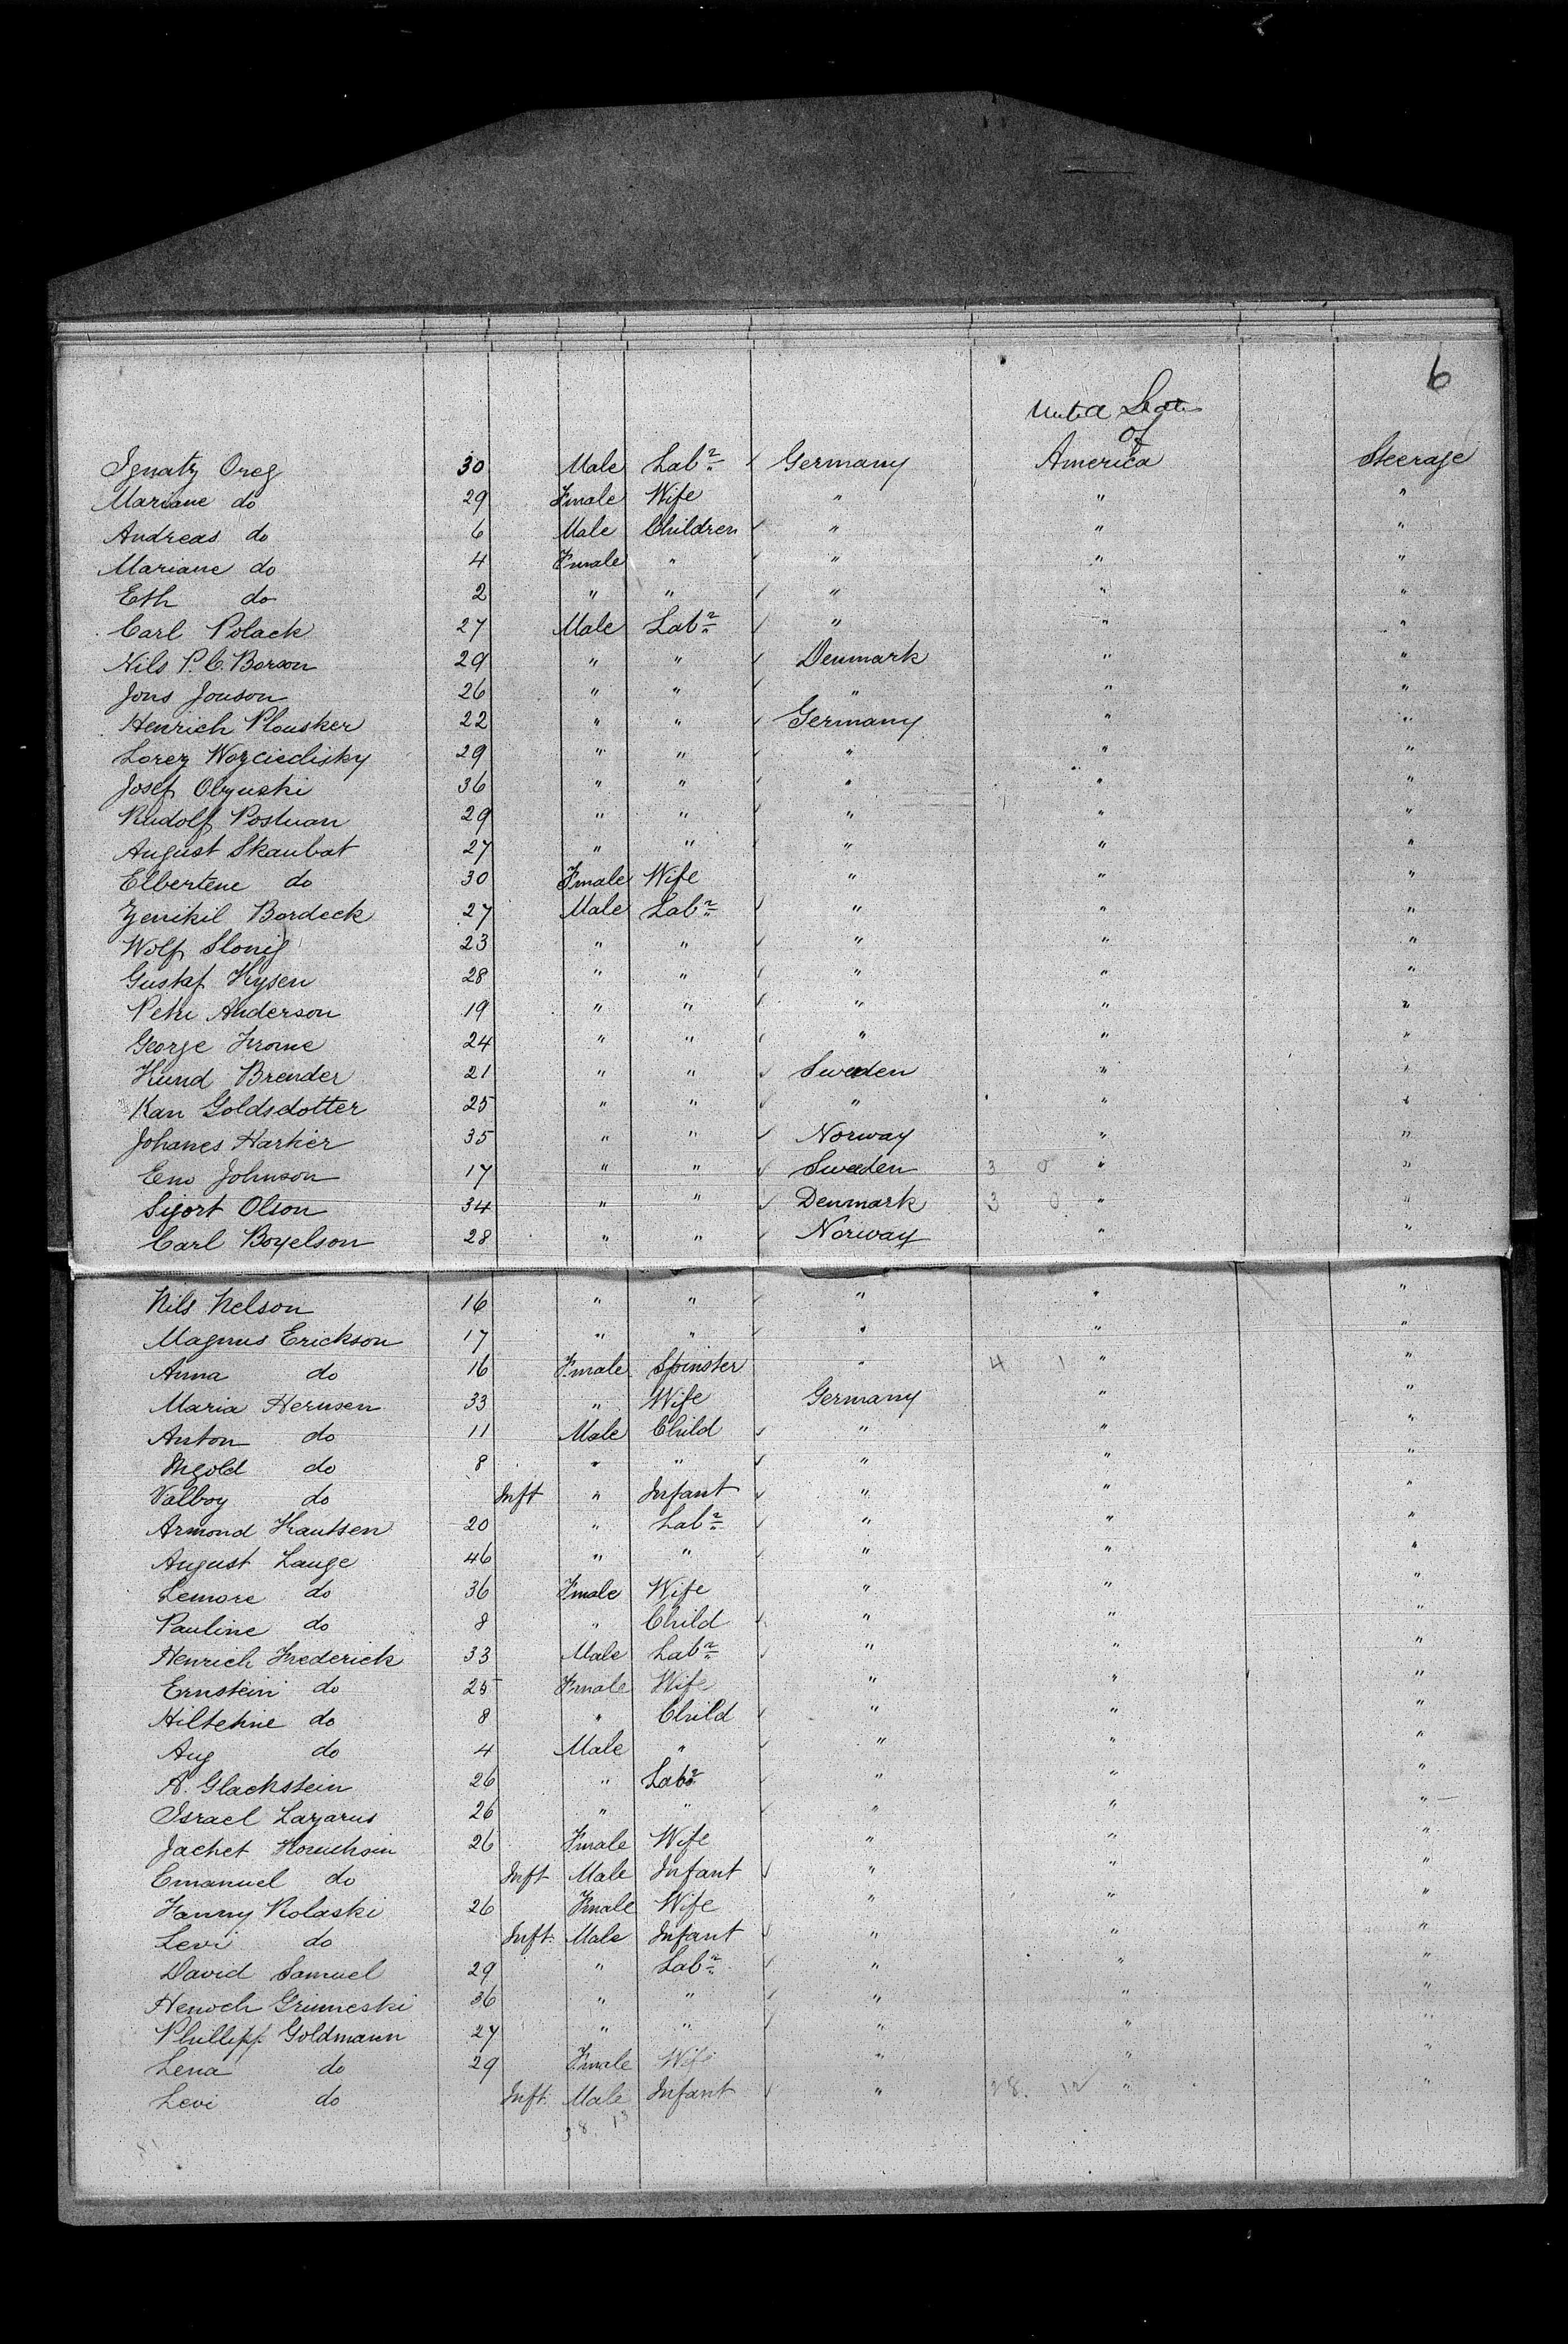 6
United States
of
Ignatz Oreg 30 Male Labr Germany America Steerage
Mariane do 29 Female Wife " " "
Andreas do 6 Male Children " " "
Mariane do 4 Female " " " "
Eth do 2 " " " " "
Carl Polack 27 Male Labr " " "
Nils P. C. Borson 29 " " Denmark " "
Jons Jonson 26 " " " " "
Henrich Plousker 22 " " Germany " "
Lorez Wozciedisky 29 " " " " "
Josef Olynski 36 " " " " "
Rudolf Postuan 29 " " " " "
August Skaubat 27 " " " " "
Elbertene do 30 Female Wife " " "
Zenikil Bordeck 27 Male Labr " " "
Wolf Slonig 23 " " " " "
Gustaf Hysen 28 " " " " "
Petri Anderson 19 " " " " "
George Frome 24 " " " " "
Kund Brender 21 " " Sweden " "
Kan Goldsdotter 25 " " " " "
Johanes Harker 35 " " Norway " "
Eno Johnson 17 " " Sweden 3 0 " "
Sijort Olson 34 " " Denmark 3 0 " "
Carl Boyelson 28 " " Norway " "
Nils Nelson 16 " " " " "
Magnus Erickson 17 " " " " "
Anna do 16 Female Spinster " 4 1 " "
Maria Hernsen 33 " Wife Germany " "
Anton do 11 Male Child " " "
Ingold do 8 " " " " "
Valboy do Inft " Infant " " "
Armond Kautsen 20 " Labr " " "
August Lange 46 " " " " "
Lemore do 36 Female Wife " " "
Pauline do 8 " Child " " "
Henrich Frederick 33 Male Labr " " "
Ernstein do 25 Female Wife " " "
Hiltehne do 8 " Child " " "
Aug do 4 Male " " " "
A. Glackstein 26 " Labr " " "
Israel Lazarus 26 " " " " "
Jachet 26 Female Wife " " "
Emanuel do Inft Male Infant " " "
Fanny Rolaski 26 Female Wife " " "
Levi do Inft. Male Infant " " "
David Samuel 29 " Labr " " "
Henoch Grimeski 36 " " " " "
Phillipp Goldmann 27 " " " " "
Lena do 29 Female Wife " " "
Levi do Inft. Male Infant " 28. 12 " "
38. 13